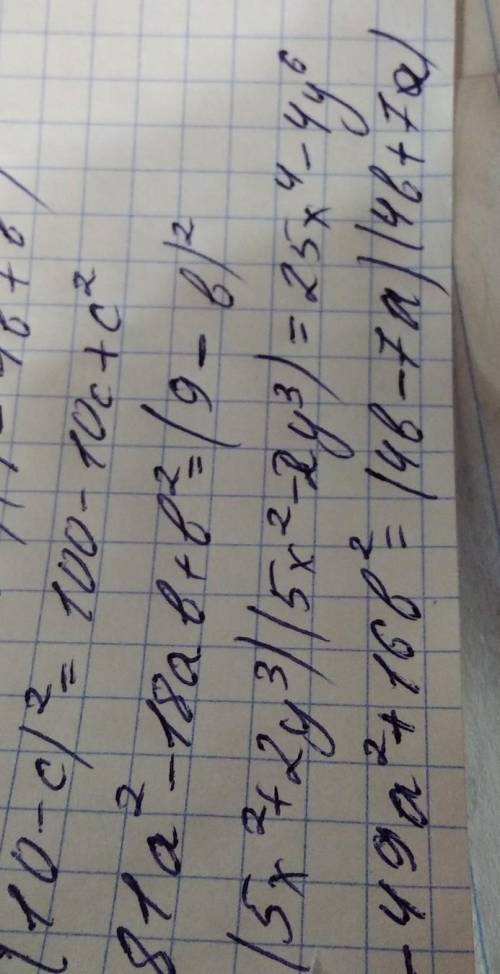 (10-c)² = 100-10c+c²
81a²-18ab+b² = (9-b)²
(5x²+2y³)(5x²-2y³) = 25x⁴-4y⁶
-49a²+16b² = (4b-7a)(4b+7a)